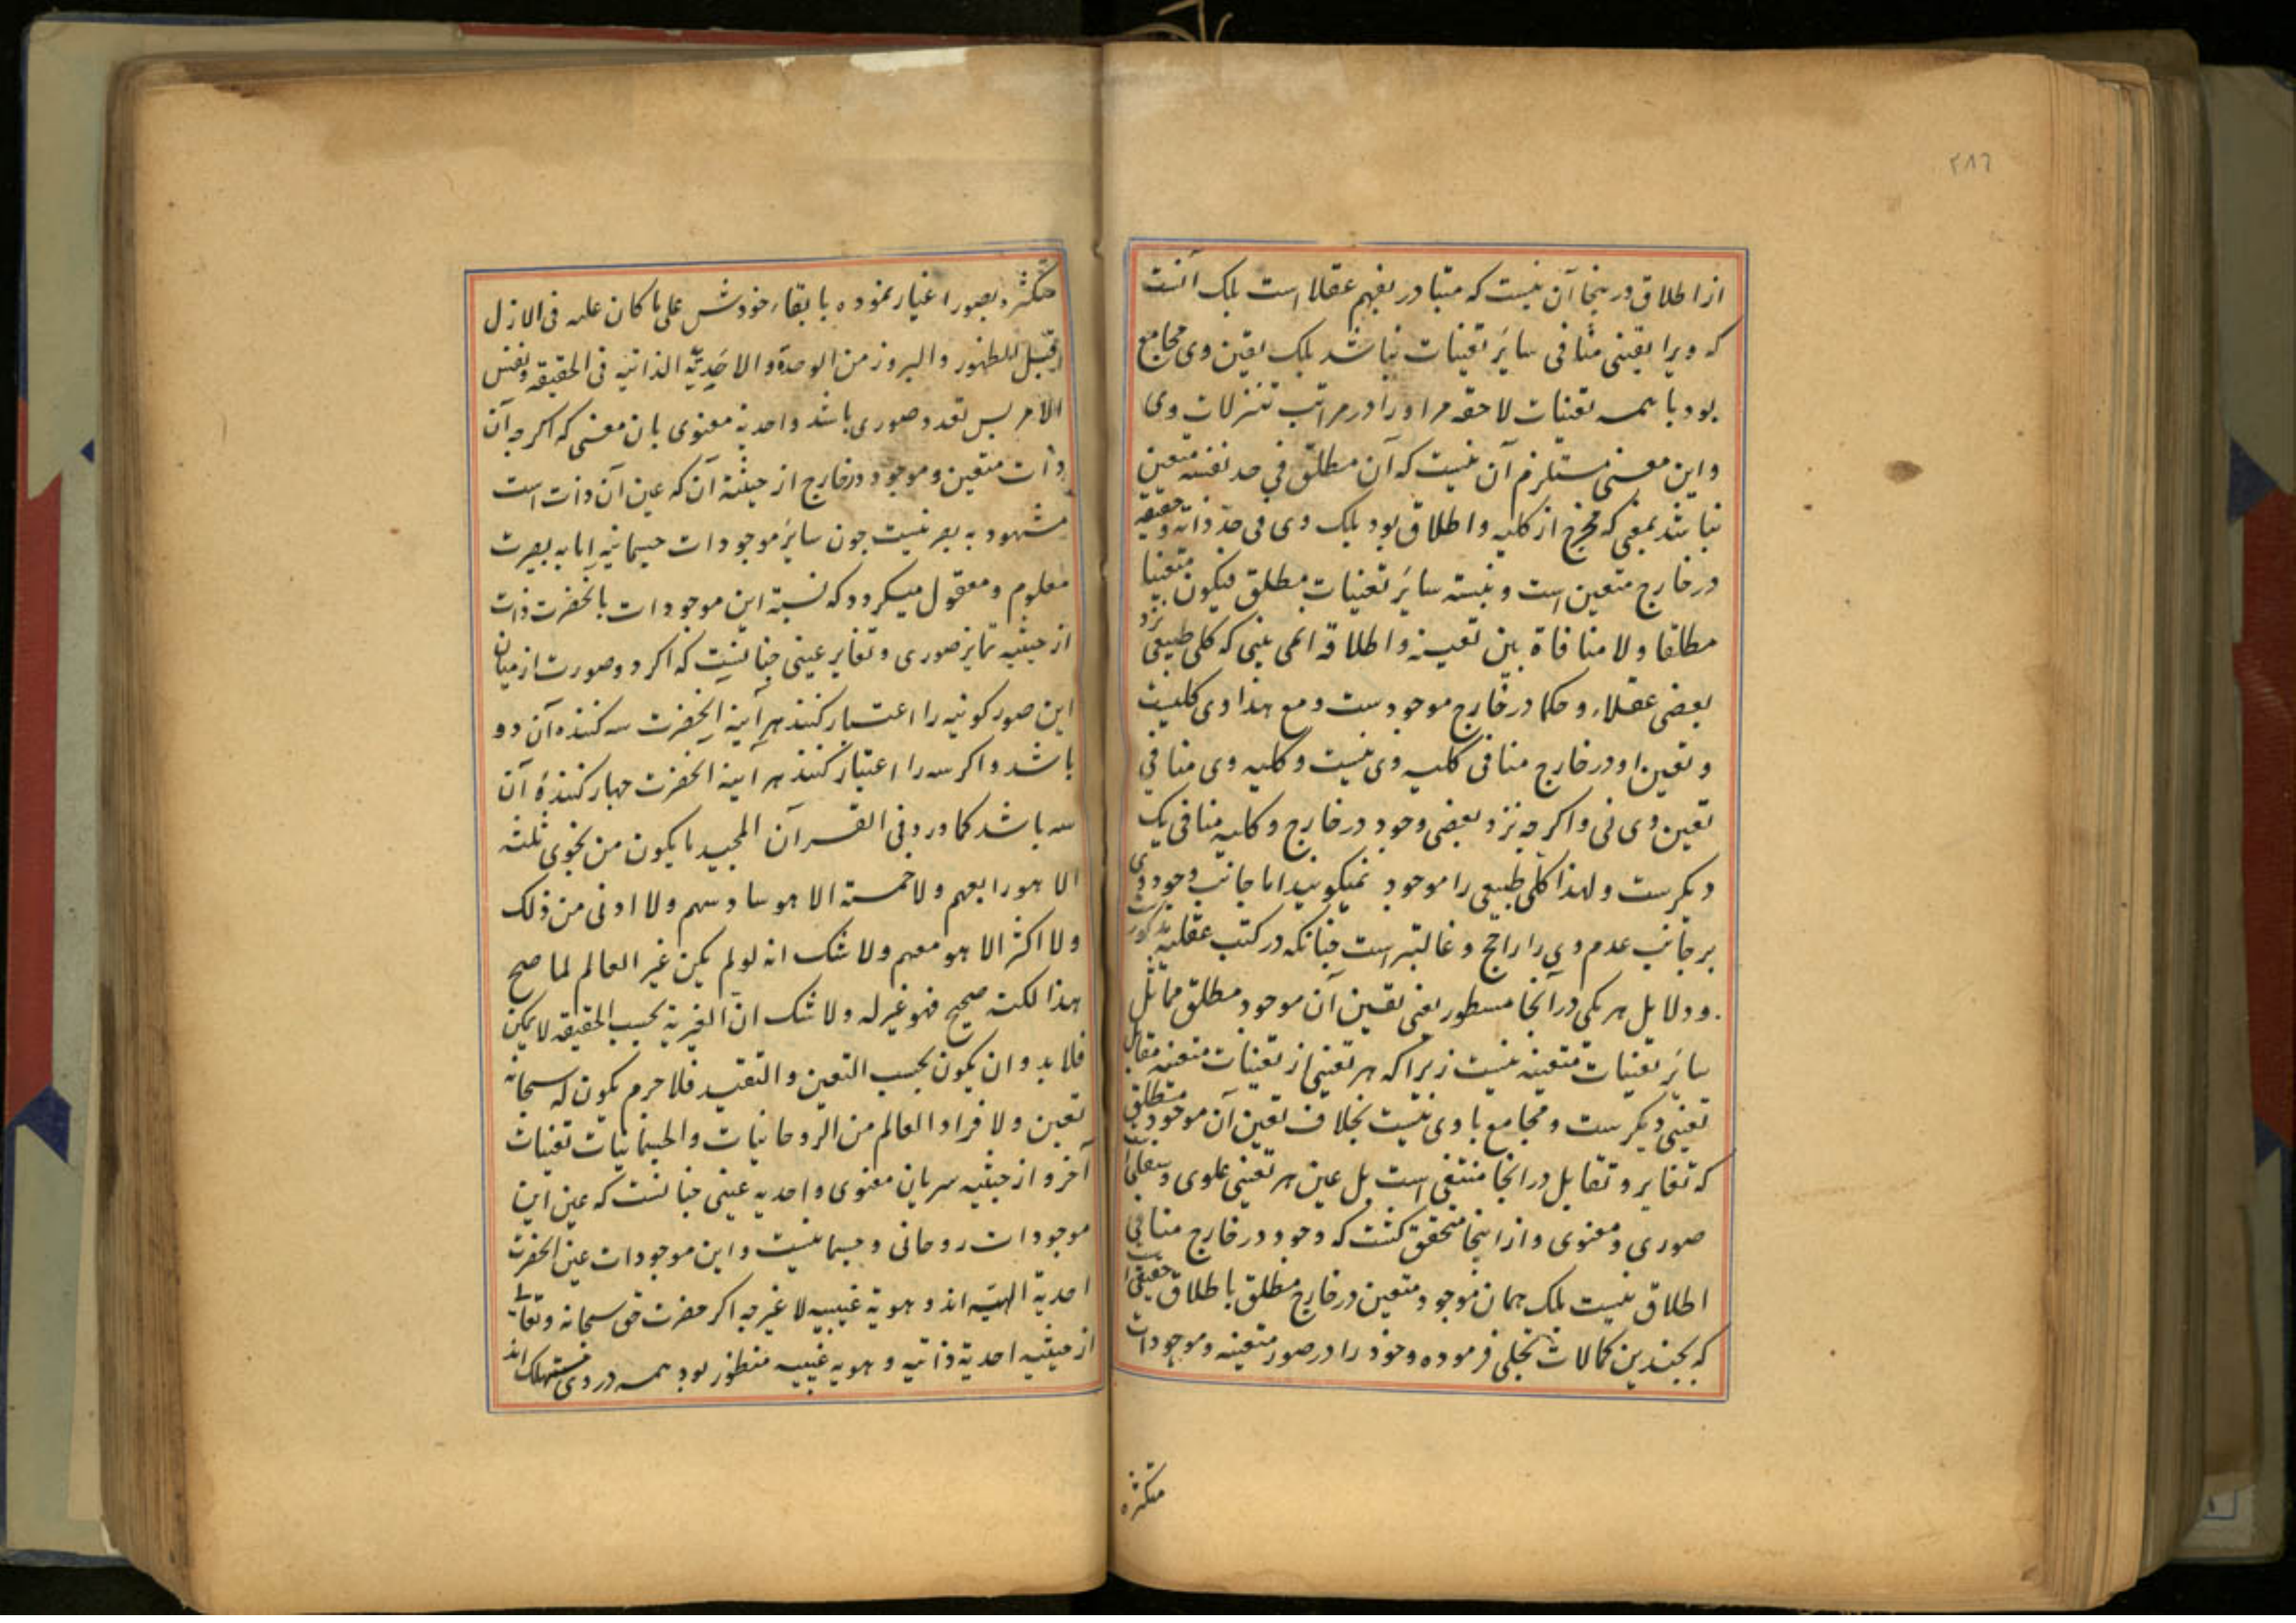 ٢٨٦
از اطلاق درینجا آن نیست که متبادر بفهم عقلا است بلک آنست
که ویرا تعینی منافی سایر تعینات نباشد بلک تعین وی مجامع
بود با همه تعینات لاحقه مر او را در مراتب تنزلات وی
و این معنی مستلزم آن نیست که آن مطلق فی حد نفسه متعین
نباشد بمعنی که مخرج از کلیه و اطلاق بود بلک وی فی حد ذاته و حقیقه
در خارج متعین است و بنسبته سایر تعینات مطلق فیکون متعینا
مطلقا ولا منافاة بین تعینه و اطلاقه المی بینی که کلی طبیعی نزد
بعضی عقلاء و حکما در خارج موجودست و مع هذا وی کلیست
و تعین او در خارج منافی کلیه وی نیست و کلیه وی منافی
تعین وی نی و اکرچه نزد بعضی وجود در خارج و کلیه منافی یک
دیکرست و لهذا کلی طبیعی را موجود نمیکویند اما جانب وجود وی
بر جانب عدم وی را راجح و غالبتر است چنانکه در کتب عقلیه مذکورست
و دلایل هر یکی در آنجا مسطور یعنی تعین آن موجود مطلق مماثل
سایر تعینات متعینه نیست زیرا که هر تعینی از تعینات متعینه مقابل
تعینی دیکرست و مجامع با وی نیست بخلاف تعین آن موجود مطلق
که تغایر و تقابل در انجا منتفی است بل عین هر تعینی علوی و سفلی است
صوری و معنوی و از اینجا متحقق کشت که وجود در خارج منافی
اطلاق نیست بلک همان موجود متعین در خارج مطلق باطلاق حقیقی است
که بچندین کمالات تجلی فرموده و خود را در صور متعینه و موجودات
متکثره
متکثره و بصور اغیار نموده با بقاء خودش علی ما کان علیه فی الازل
قبل الظهور و البروز من الوحدة و الاحدیّة الذاتیه فی الحقیقه و نفس
الامر پس تعدد صوری باشد و احدیه معنوی بان معنی که اکرچه آن
ذات متعین و موجود در خارج از حیثیة آن که عین آن ذات است
مشهود به بصر نیست چون سایر موجودات جسمانیه اما به بصیرت
معلوم و معقول میکردد که نسبته این موجودات بالحضرت ذات
از حیثیه تمایز صوری و تغایر عینی چنانست که اکر دو صورت از میان
این صور کونیه را اعتبار کنند هر آینه الحضرت سه کننده آن دو
باشد و اکر سه را اعتبار کنند هر آینه الحضرت چهار کنندهٔ آن
سه باشد کما ورد فی القرآن المجید ما یکون من نجوی ثلثه
الا هو رابعهم ولا خمسته الا هو سادسهم ولا ادنی من ذلک
ولا اکثر الا هو معهم ولا شک انه لو لم یکن غیر العالم لما صح
هذا لکنه صحیح فهو غیر له ولا شک ان الغیریة بحسب الحقیقه لا یمکن
فلا بد و ان یکون بحسب التعین و التقید فلا جرم یکون له سبحانه
تعین و لافراد العالم من الروحانیات و الجسمانیات تعینات
آخر و از حیثیه سریان معنوی و احدیه عینی چنانست که عین این
موجودات روحانی و جسمانیست و این موجودات عین الحضرت
احدیة الهیّه اند و هویة غیبیه لا غیر چه اکر حضرت حق سبحانه و تعالی
از حیثیه احدیة ذاتیه و هویه غیبیه منظور بود همه در وی مستهلک اند